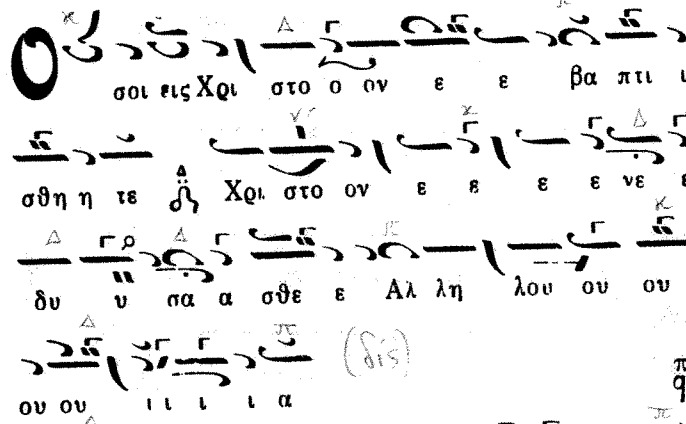 Ο σοι εις Χρι στο ο ον ε ε βα πτι ι
σθη η τε Χρι στο ον ε ε ε ε νε ε
δυ υ σα α σθε ε Αλ λη λου ου ου
ου ου ι ι ι ι α (δις)